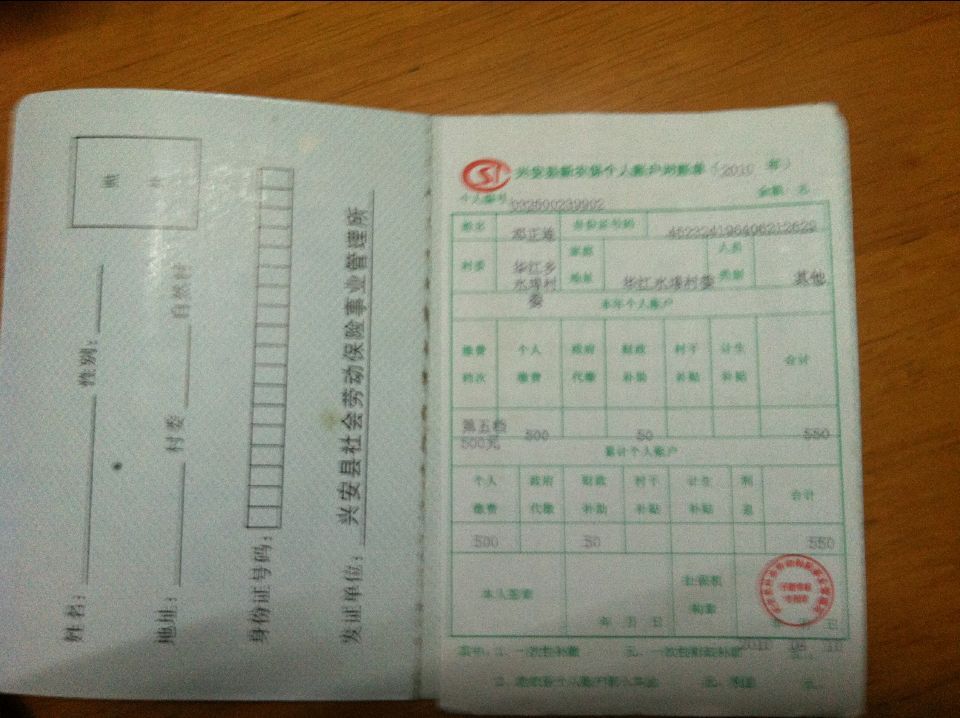 照 片
姓名：
性别：
地址：
村委
自然村
身份证号码：
发证单位：兴安县社会劳动保险事业管理所
兴安县新农保个人账户对账单（2010 年）
个人编号
金额：元
姓名
身份证号码
村委
华江乡水埠村委
家庭地址
华江水埠村委
人员类别
其他
本年个人账户
缴费档次 个人缴费 政府代缴 财政补助 村干补贴 计生补贴 合计
第五档500元 500 50 550
累计个人账户
个人缴费 政府代缴 财政补助 村干补贴 计生补贴 利息 合计
500 50 550
本人签章
年 月 日
社保机构章
年 日
其中：1、一次性补缴 元，
2、